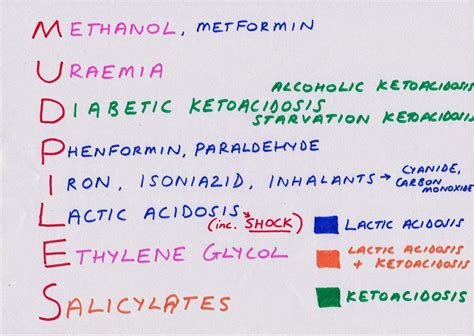 METHANOL, METFORMIN
URAEMIA
ALCOHOLIC KETOACIDOSIS
DIABETIC KETOACIDOSIS
STARVATION KETOACIDOSIS
PHENFORMIN, PARALDEHYDE
IRON, ISONIAZID, INHALANTS → CYANIDE, CARBON MONOXIDE
LACTIC ACIDOSIS (inc. SHOCK)
LACTIC ACIDOSIS
ETHYLENE GLYCOL
LACTIC ACIDOSIS + KETOACIDOSIS
SALICYLATES
KETOACIDOSIS